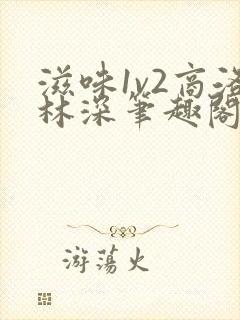 滋味1v2高洛
林深笔趣阁
游荡火